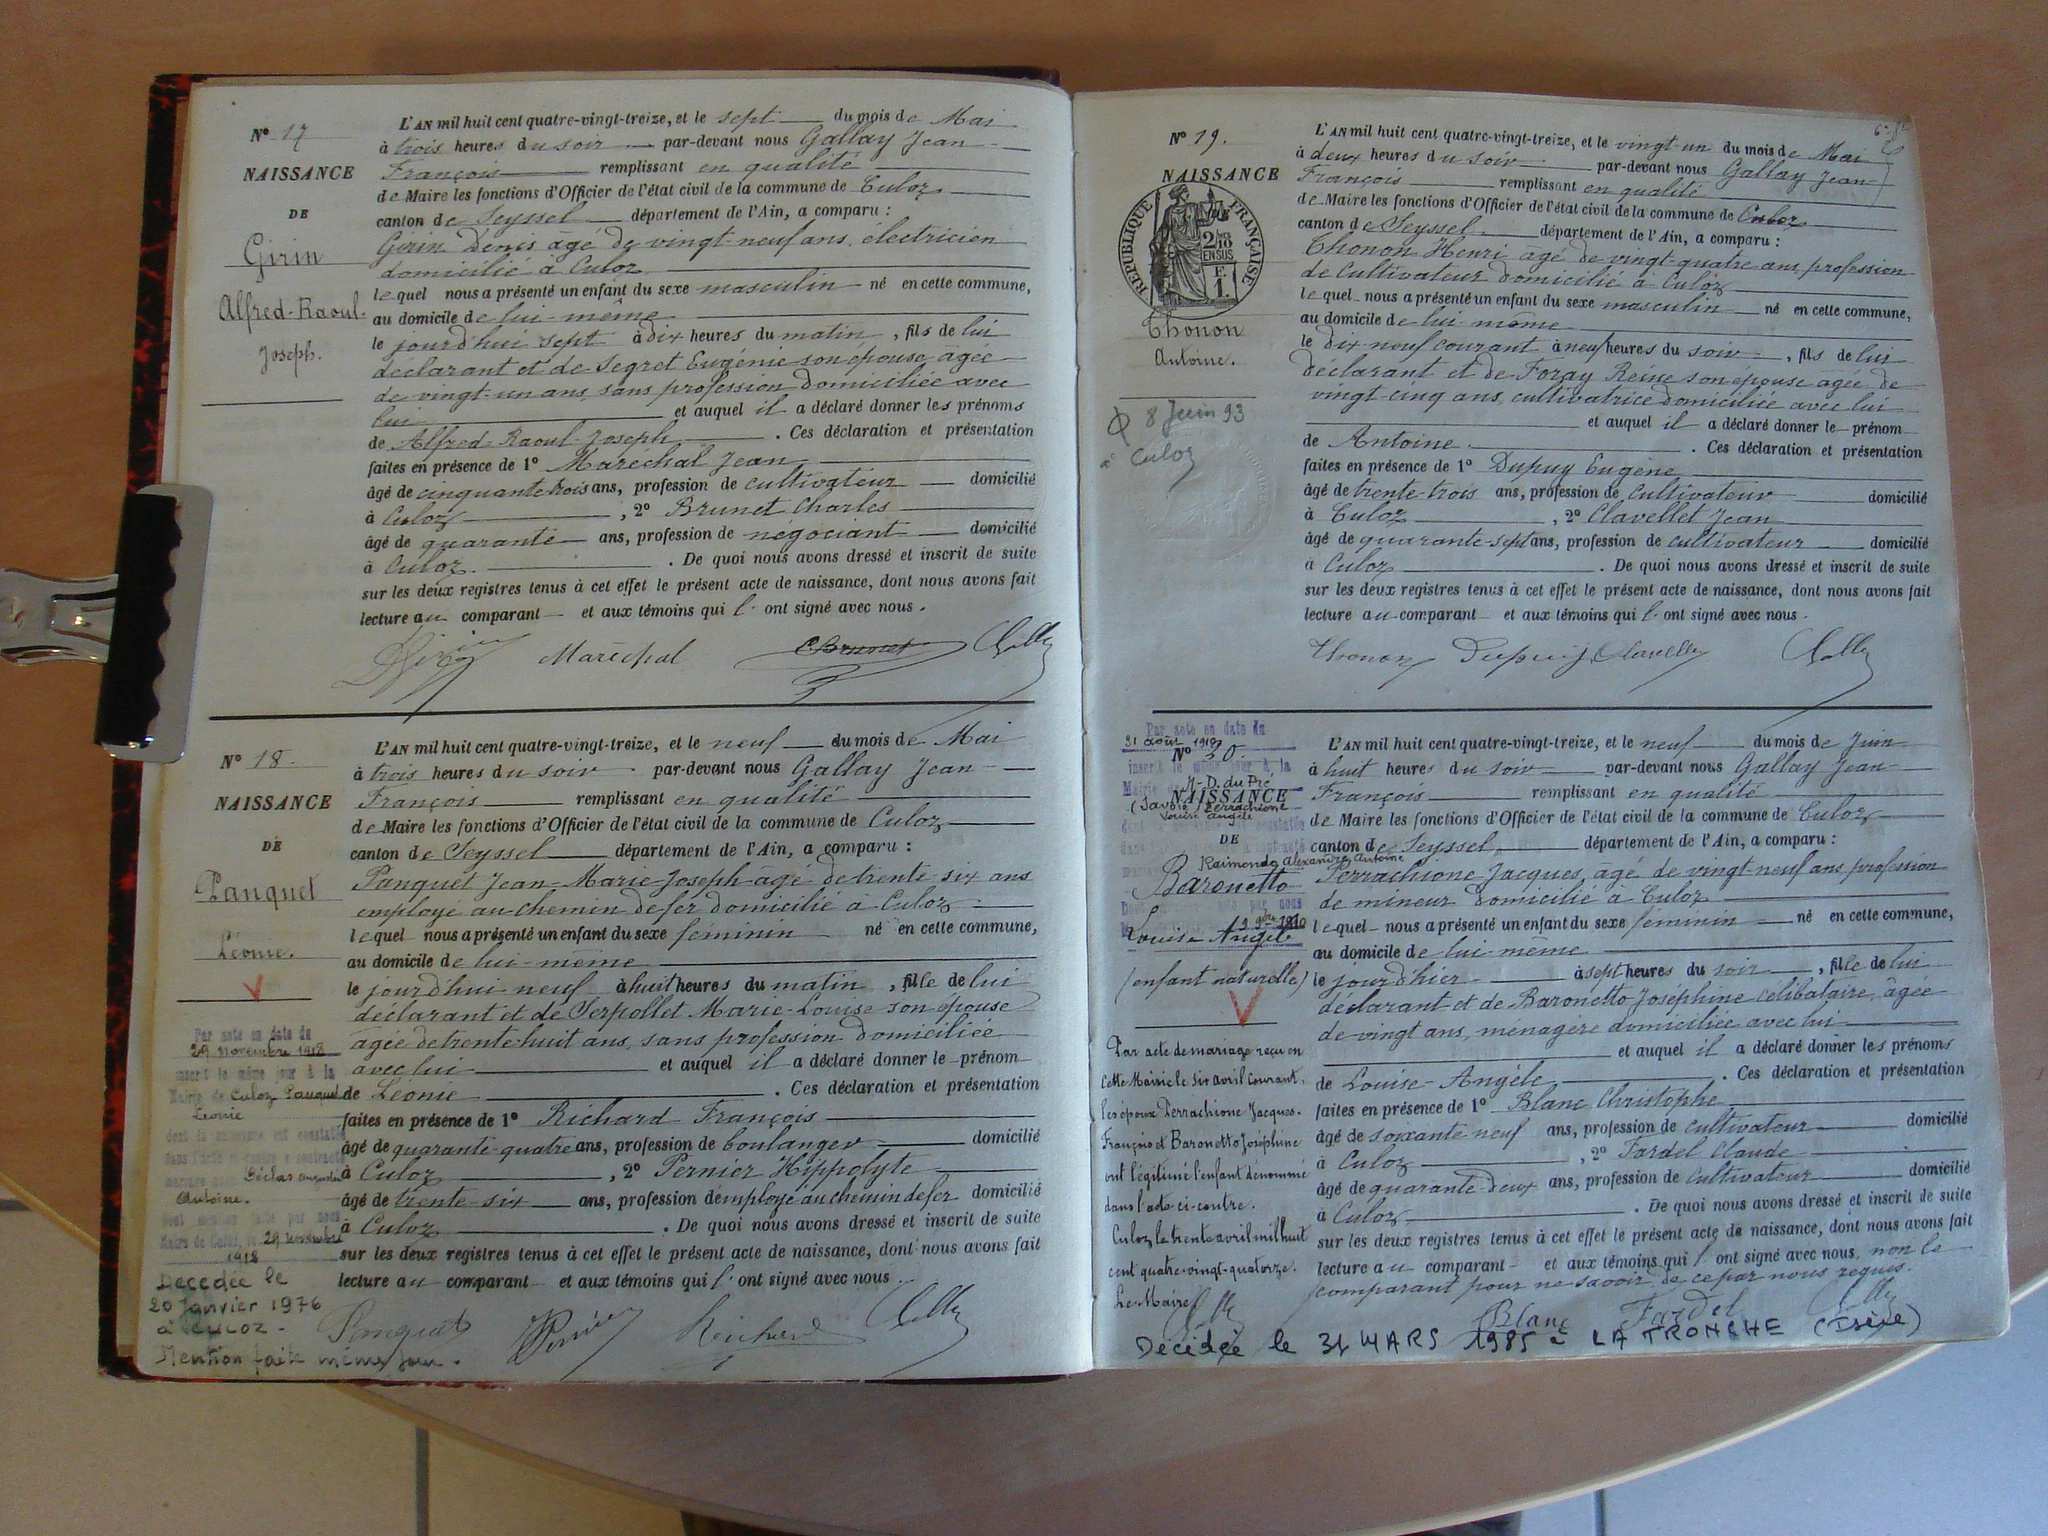 Nº 17
NAISSANCE
DE
Girin
Alfred-Raoul-
Joseph.
L'AN mil huit cent quatre-vingt-treize, et le sept du mois de Mai
à trois heures du soir par-devant nous Gallay Jean-
François remplissant en qualité
de Maire les fonctions d'Officier de l'état civil de la commune de Culoz
canton de Seyssel département de l'Ain, a comparu :
Girin Denis âgé de vingt-neuf ans, électricien
domicilié à Culoz
lequel nous a présenté un enfant du sexe masculin né en cette commune,
au domicile de lui-même
le jourd'hui sept à dix heures du matin, fils de lui
déclarant et de Segret Eugénie son épouse âgée
de vingt-un ans, sans profession domiciliée avec
lui et auquel il a déclaré donner les prénoms
de Alfred-Raoul-Joseph. Ces déclaration et présentation
faites en présence de 1º Maréchal Jean
âgé de cinquante-trois ans, profession de cultivateur domicilié
à Culoz, 2º Brunet Charles
âgé de quarante ans, profession de négociant domicilié
à Culoz. De quoi nous avons dressé et inscrit de suite
sur les deux registres tenus à cet effet le présent acte de naissance, dont nous avons fait
lecture au comparant et aux témoins qui l'ont signé avec nous.
Girin Maréchal CBrunet
Nº 18.
NAISSANCE
DE
Panquet
Léonie.
L'AN mil huit cent quatre-vingt-treize, et le neuf du mois de Mai
à trois heures du soir par-devant nous Gallay Jean-
François remplissant en qualité
de Maire les fonctions d'Officier de l'état civil de la commune de Culoz
canton de Seyssel département de l'Ain, a comparu :
Panquet Jean-Marie-Joseph âgé de trente six ans
employé au chemin de fer domicilié à Culoz
lequel nous a présenté un enfant du sexe féminin né en cette commune,
au domicile de lui-même
le jourd'hui neuf à huit heures du matin, fille de lui
déclarant et de Serpollet Marie-Louise son épouse
âgée de trente huit ans, sans profession domiciliée
avec lui et auquel il a déclaré donner le prénom
de Léonie. Ces déclaration et présentation
faites en présence de 1º Richard François
âgé de quarante-quatre ans, profession de boulanger domicilié
à Culoz, 2º Pernier Hippolyte
âgé de trente-six ans, profession d'employé au chemin de fer domicilié
à Culoz. De quoi nous avons dressé et inscrit de suite
sur les deux registres tenus à cet effet le présent acte de naissance, dont nous avons fait
lecture au comparant et aux témoins qui l'ont signé avec nous.
Panquet Pernier Richard
Par acte en date du
29 novembre 1918
inscrit le même jour à la
Mairie de Culoz Panquet
Léonie
Antoine.
29 novembre
1918
Décédée le
20 Janvier 1976
à CULOZ -
Mention faite même jour.
Nº 19.
NAISSANCE
DE
RÉPUBLIQUE FRANÇAISE
Thonon
Antoine.
8 Juin 93
à Culoz
L'AN mil huit cent quatre-vingt-treize, et le vingt-un du mois de Mai
à deux heures du soir par-devant nous Gallay Jean-
François remplissant en qualité
de Maire les fonctions d'Officier de l'état civil de la commune de Culoz
canton de Seyssel département de l'Ain, a comparu :
Thonon Henri âgé de vingt-quatre ans, profession
de cultivateur domicilié à Culoz
lequel nous a présenté un enfant du sexe masculin né en cette commune,
au domicile de lui-même
le dix-neuf courant à neuf heures du soir, fils de lui
déclarant et de Foray Reine son épouse âgée de
vingt-cinq ans, cultivatrice domiciliée avec lui
et auquel il a déclaré donner le prénom
de Antoine. Ces déclaration et présentation
faites en présence de 1º Dupuy Eugène
âgé de trente-trois ans, profession de cultivateur domicilié
à Culoz, 2º Clavellet Jean
âgé de quarante-sept ans, profession de cultivateur domicilié
à Culoz. De quoi nous avons dressé et inscrit de suite
sur les deux registres tenus à cet effet le présent acte de naissance, dont nous avons fait
lecture au comparant et aux témoins qui l'ont signé avec nous.
Thonon Dupuy Clavellet
Par acte en date du
31 août 1910
Nº 20
inscrit le même jour à la
N-D. du Pré
(Savoie) Perrachione
NAISSANCE
Louise Angèle
DE
Raimondo Alexandre Antoine
Baronetto
Louise Angèle
(enfant naturelle)
L'AN mil huit cent quatre-vingt-treize, et le neuf du mois de Juin
à huit heures du soir par-devant nous Gallay Jean-
François remplissant en qualité
de Maire les fonctions d'Officier de l'état civil de la commune de Culoz
canton de Seyssel département de l'Ain, a comparu :
Perrachione Jacques, âgé de vingt-neuf ans profession
de mineur domicilié à Culoz
lequel nous a présenté un enfant du sexe féminin né en cette commune,
au domicile de lui-même
le jour d'hier à sept heures du soir, fille de lui
déclarant et de Baronetto Joséphine célibataire, âgée
de vingt ans, ménagère domiciliée avec lui
et auquel il a déclaré donner les prénoms
de Louise-Angèle. Ces déclaration et présentation
faites en présence de 1º Blanc Christophe
âgé de soixante neuf ans, profession de cultivateur domicilié
à Culoz, 2º Fardel Claude
âgé de quarante-deux ans, profession de cultivateur domicilié
à Culoz. De quoi nous avons dressé et inscrit de suite
sur les deux registres tenus à cet effet le présent acte de naissance, dont nous avons fait
lecture au comparant et aux témoins qui l'ont signé avec nous, non le
comparant pour ne savoir de ce par nous requis.
Blanc Fardel
Par acte de mariage reçu en
cette Mairie le six avril courant,
les époux Perrachione Jacques-
François et Baronetto Joséphine
ont légitimé l'enfant dénommé
dans l'acte ci-contre.
Culoz, le trente avril mil huit
cent quatre-vingt-quatorze.
Le Maire
Décédée le 31 MARS 1985 à LA TRONCHE (Isère)